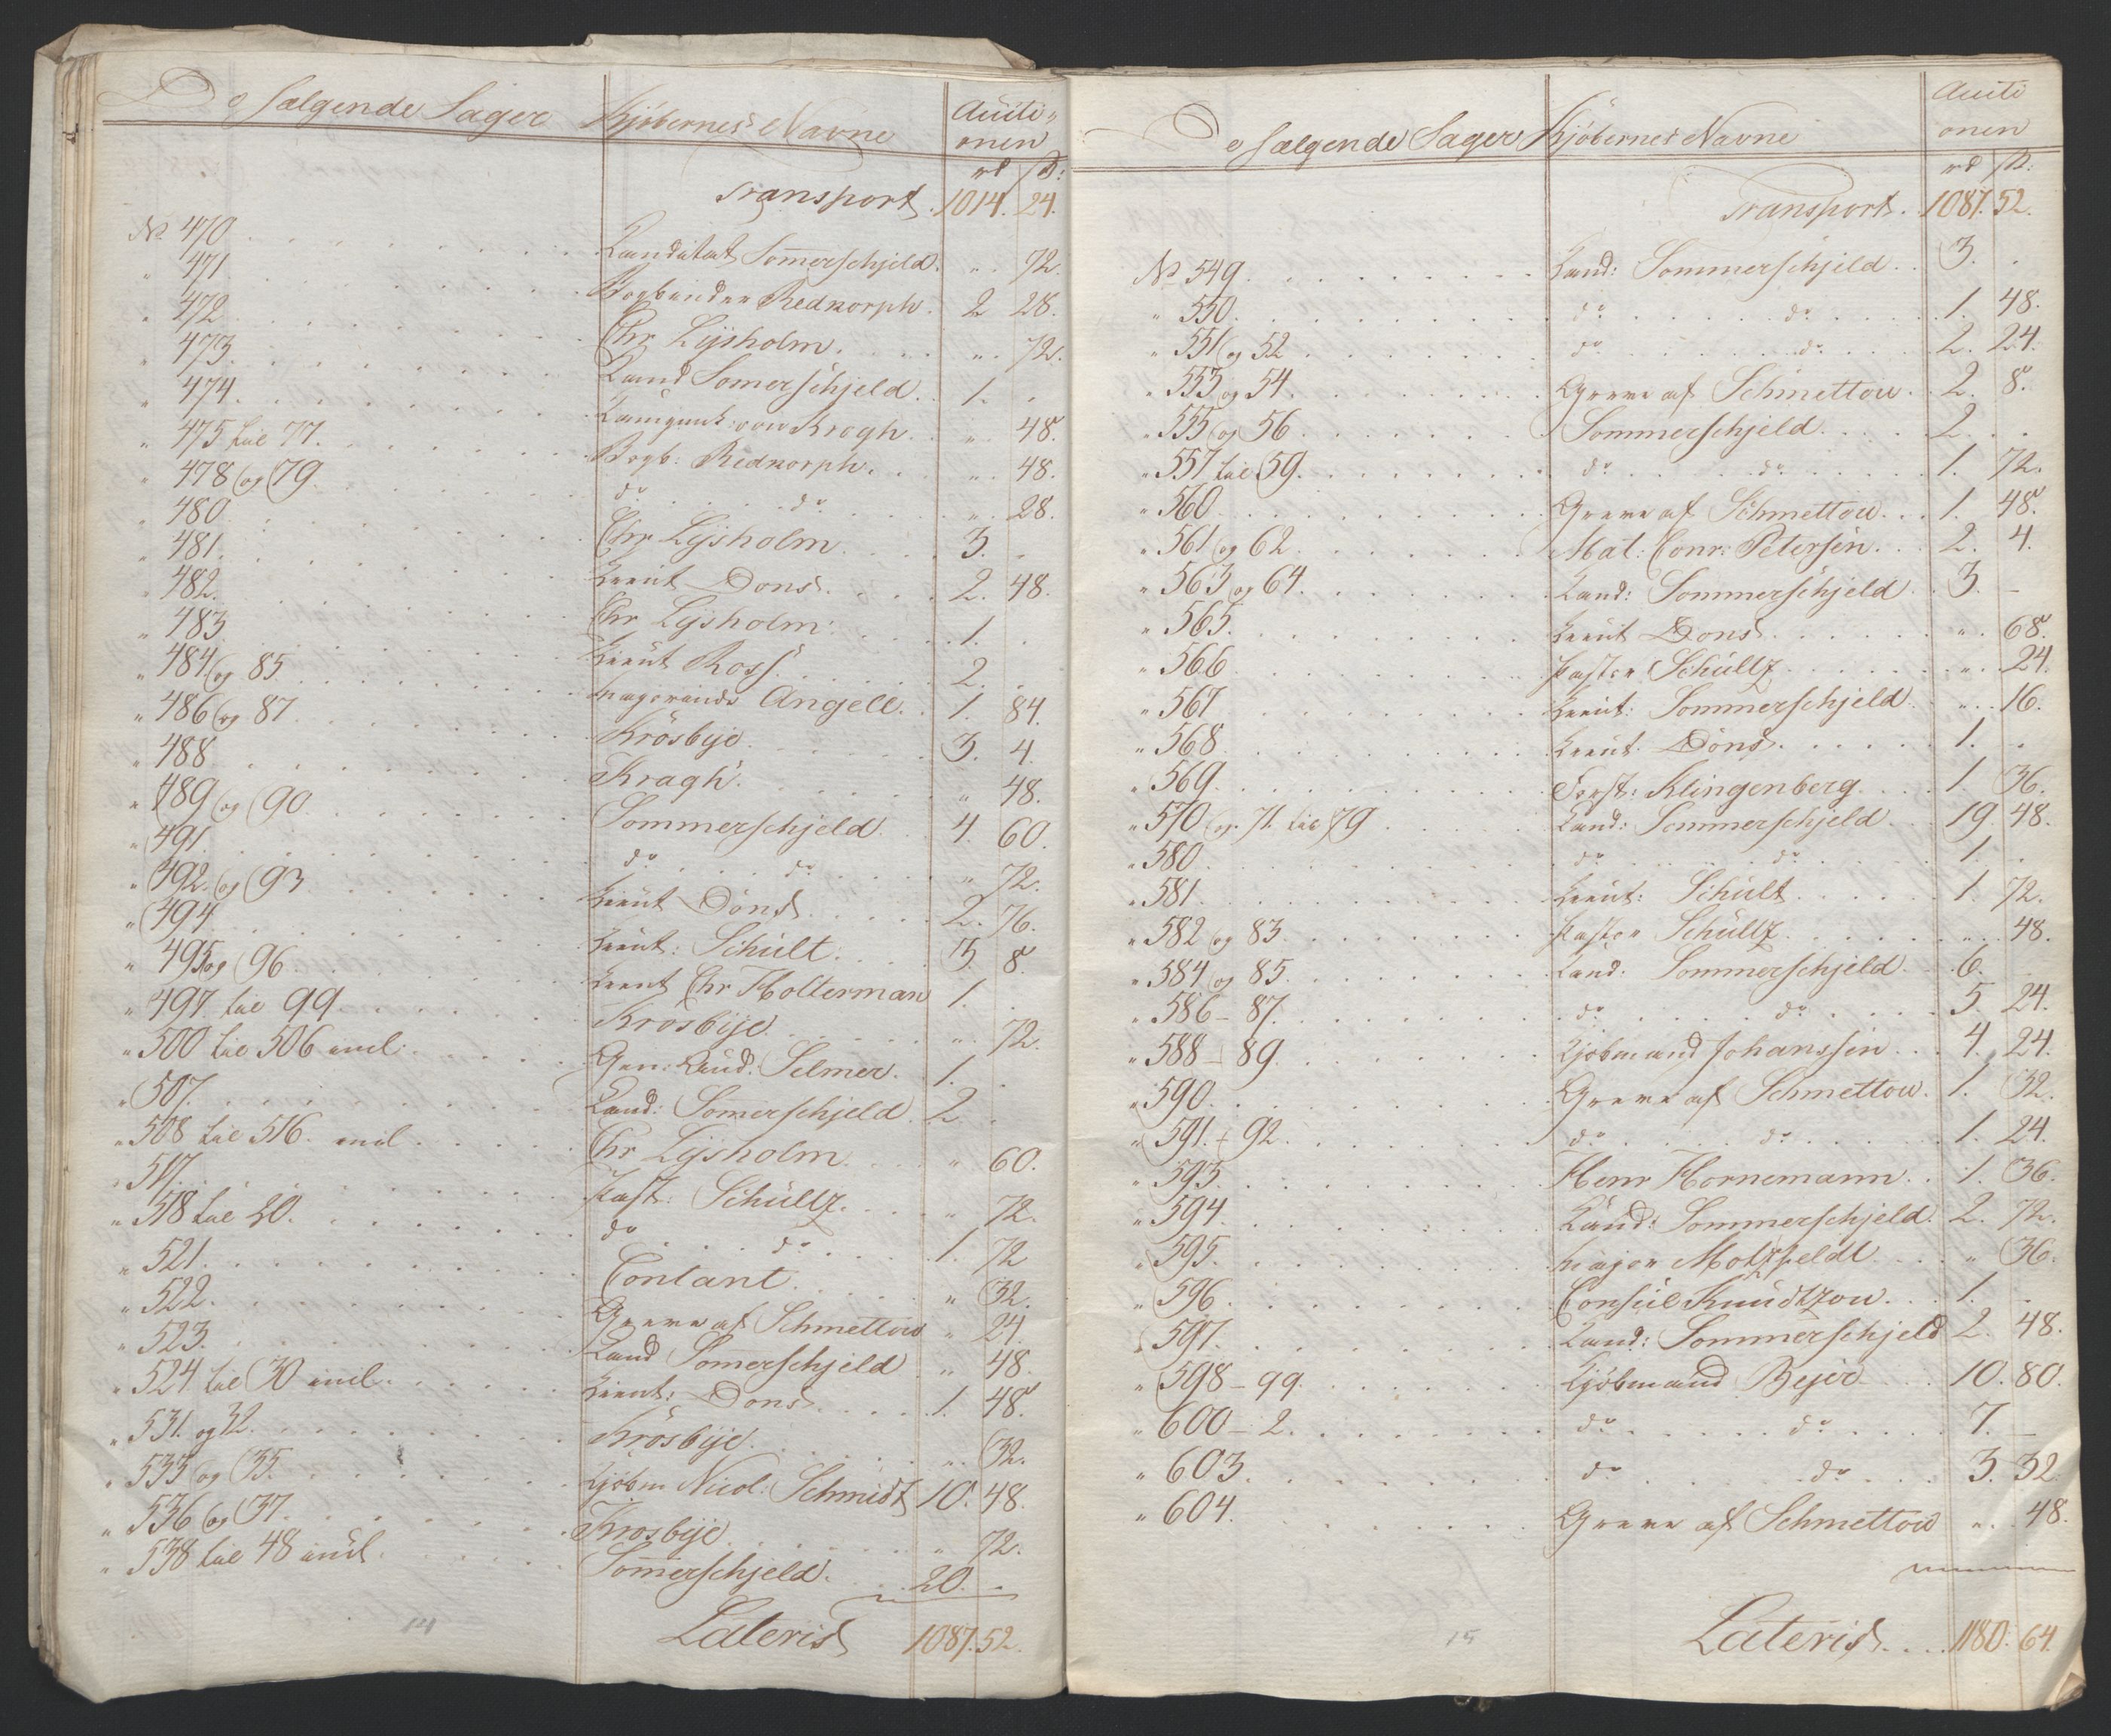 De sælgende Sager Kjöbernes Navne Aucti-
onen
rd ß:
Transport. 1014. 24.
No 470 Kandidat Somerschjeld. " 72.
" 471 Bogbinder Rednorph. 2 28.
" 472 Chr Lysholm. " 72.
" 473. Kand Somerschjeld. 1. .
" 474. von Krogh. " 48.
" 475 til 77. Bogb: Rednorph. " 48.
" 478 og 79. do do " 28.
" 480 Chr Lysholm 3. .
" 481. Lieut Dons. 2. 48.
" 482. Chr Lysholm. 1. .
" 483. Lieut Ross. 2. .
" 484. og 85 Angell. 1. 84.
" 486 og 87 Krösbye. 3. 4.
" 488 Kragh. " 48.
" 489 og 90. Sommerschjeld. 4. 60.
" 491. do do " 72.
" 492. og 93 Lieut Dons 2. 76.
" 494 Lieut: Schult. 5. 8.
" 495 og 96. Lieut Chr Holterman 1. .
" 497 til 99. Krösbye. " 72.
" 500 til 506 incl. Gen: Kaud: Selmer. 1. .
" 507. Kand: Somerschjeld 2 .
" 508 til 516. incl Chr Lysholm. " 60.
" 517. Past: Schültz. " 72.
" 518 til 20. do do 1. 72
" 521. Contant. " 32.
" 522. Greve af Schmettow " 24.
" 523. Kand Somerschjeld " 48.
" 524 til 30 incl. Lieut: Dons. 1. 48.
" 531. og 32. Krösbye. " 32.
" 533 og 35. Kjöbm Nicol: Schmidt 10. 48.
" 536 og 37. Krosbye. " 72.
" 538 til 48 incl. Somerschjeld. 20. -
Lateris 1087. 52.
14
De sælgende Sager Kjöbernes Navne Aucti
onen
rd ß:
Transport. 1087. 52.
No 549. Kand: Sommerschjeld. 3. .
" 550. do do 1. 48.
" 551 og 52 do do 2. 24.
" 553 og 54. Greve af Schmettow. 2. 8.
" 555 og 56. Sommerschjeld. 2. .
" 557 til 59. do do 1. 72.
" 560 Greve af Schmettow. 1. 48.
" 561 og 62. Mal: Conr: Petersen. 2. 4.
" 563 og 64. Kand: Sommerschjeld. 3. -
" 565. Lieut Dons. " 68.
" 566 Pastor Schültz. " 24.
" 567 Lieut: Sommerschjeld. " 16.
" 568 Lieut. Dons. 1. .
" 569. Forst: Klingenberg. 1. 36.
" 570 og 71. til 79 Kand: Sommerschjeld. 19. 48.
" 580. do do 1. .
" 581. Lieut: Schult. 1. 72.
" 582 og 83. Pastor Schültz. " 48.
" 584 og 85. Kand: Sommerschjeld. 6.
" 586 - 87. do do 5. 24.
" 588 - 89. Kjöbmand Johanssen. 4. 24.
" 590. Greve af Schmettow. 1. 32.
" 591. - 92. do do 1. 24.
" 593. Henr Hornemann. 1. 36.
" 594. Kand: Sommerschjeld. 2. 72.
" 595. Major Motzfeldt. " 36.
" 596. Consul Knudtzon. 1. .
" 597. Kand: Sommerschjeld 2. 48.
" 598 - 99. Kjöbmand Bejer 10. 80.
" 600 - 2. do do 7. -
" 603. do do 3. 32.
" 604. Greve af Schmettow " 48.
Lateris. 1180. 64.
15